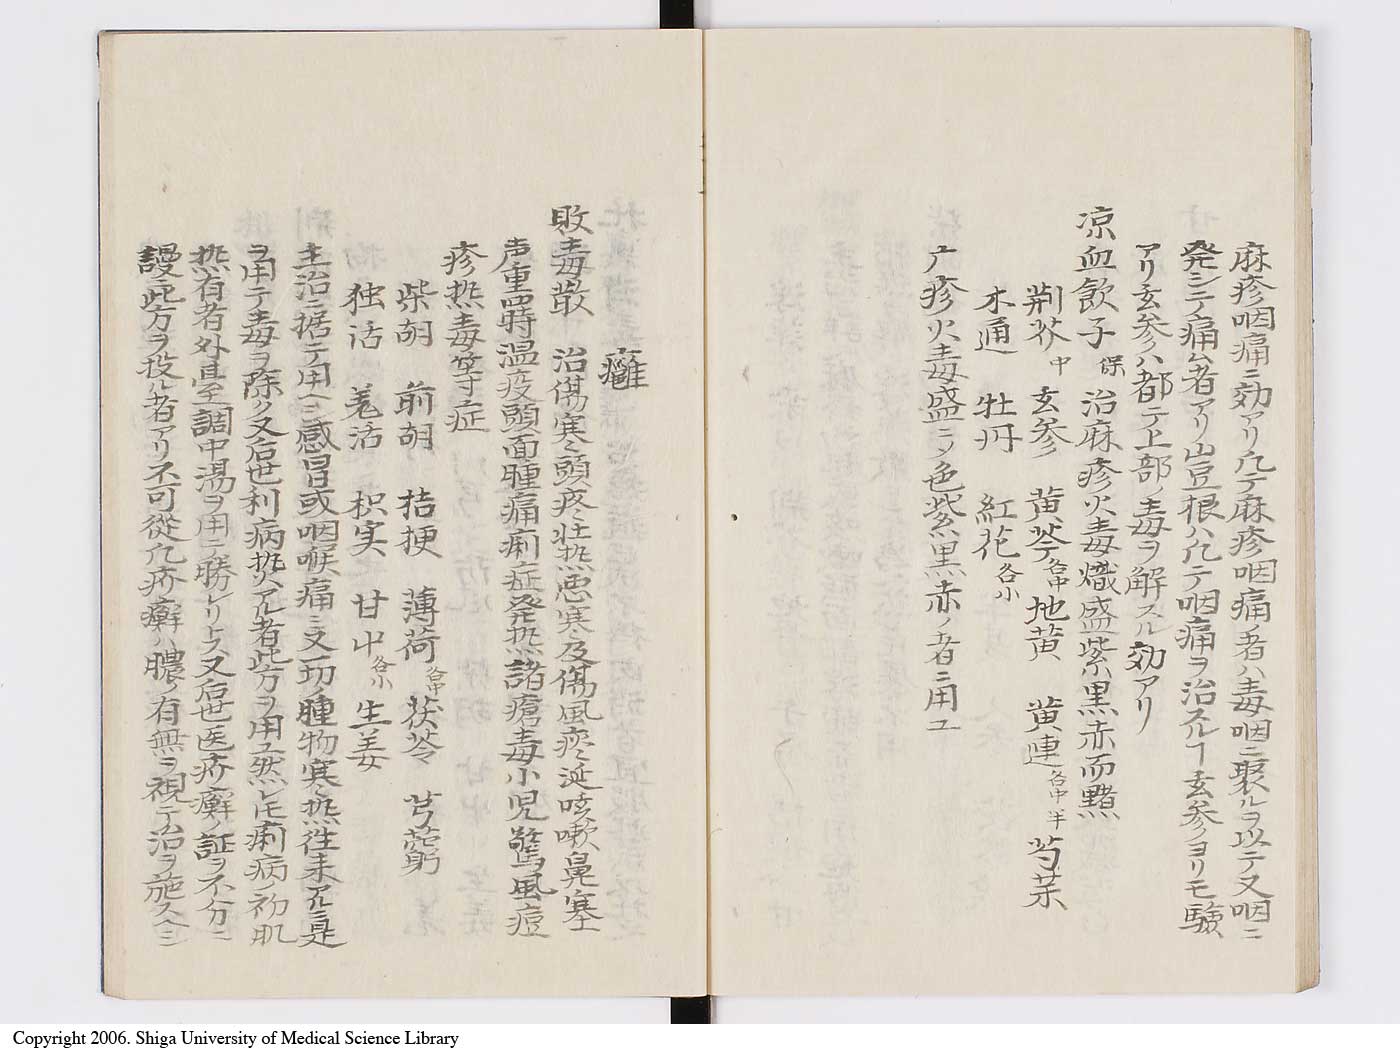 麻疹咽痛ニ効アリ凡テ麻疹咽痛者ハ毒咽ニ聚ルヲ以テ又咽ニ
発シテ痛ム者アリ山豆根ハ凡テ咽痛ヲ治スルヿ玄参ヨリモ験
アリ玄参ハ都テ上部ノ毒ヲ解スル効アリ
凉血飲子 保 治麻疹火毒熾盛紫黒赤而黯
荆芥中 玄参 黄芩各中 地黄 黄連各中半 芍薬
木通 牡丹 紅花各小
疹火毒盛ニメ色紫黒赤ノ者ニ用ユ
癰
敗毒散 治傷寒頭疼壮热悪寒及傷風疼涎咳嗽鼻塞
声重四時温疫頭面腫痛痢症発热諸瘡毒小児驚風痘
疹热毒等症
柴胡 前胡 桔梗 薄荷各中 茯苓 芎藭
独活 羌活 枳実 甘艸各小 生姜
主治ニ据テ用ヘシ感冒或咽喉痛ニ又一切ノ腫物寒热往来アルニ是
ヲ用テ毒ヲ除ク又后世利病热アル者此方ヲ用ユ然レ𪜈痢病ノ初肌
热有者外臺調中湯ヲ用ニ勝レリトス又后世医疥癬ノ証ヲ不分ニ
謾ニ此方ヲ投ル者アリ不可従凡疥癬ハ膿ノ有無ヲ視テ治ヲ施スヘシ
Copyright 2006. Shiga University of Medical Science Library